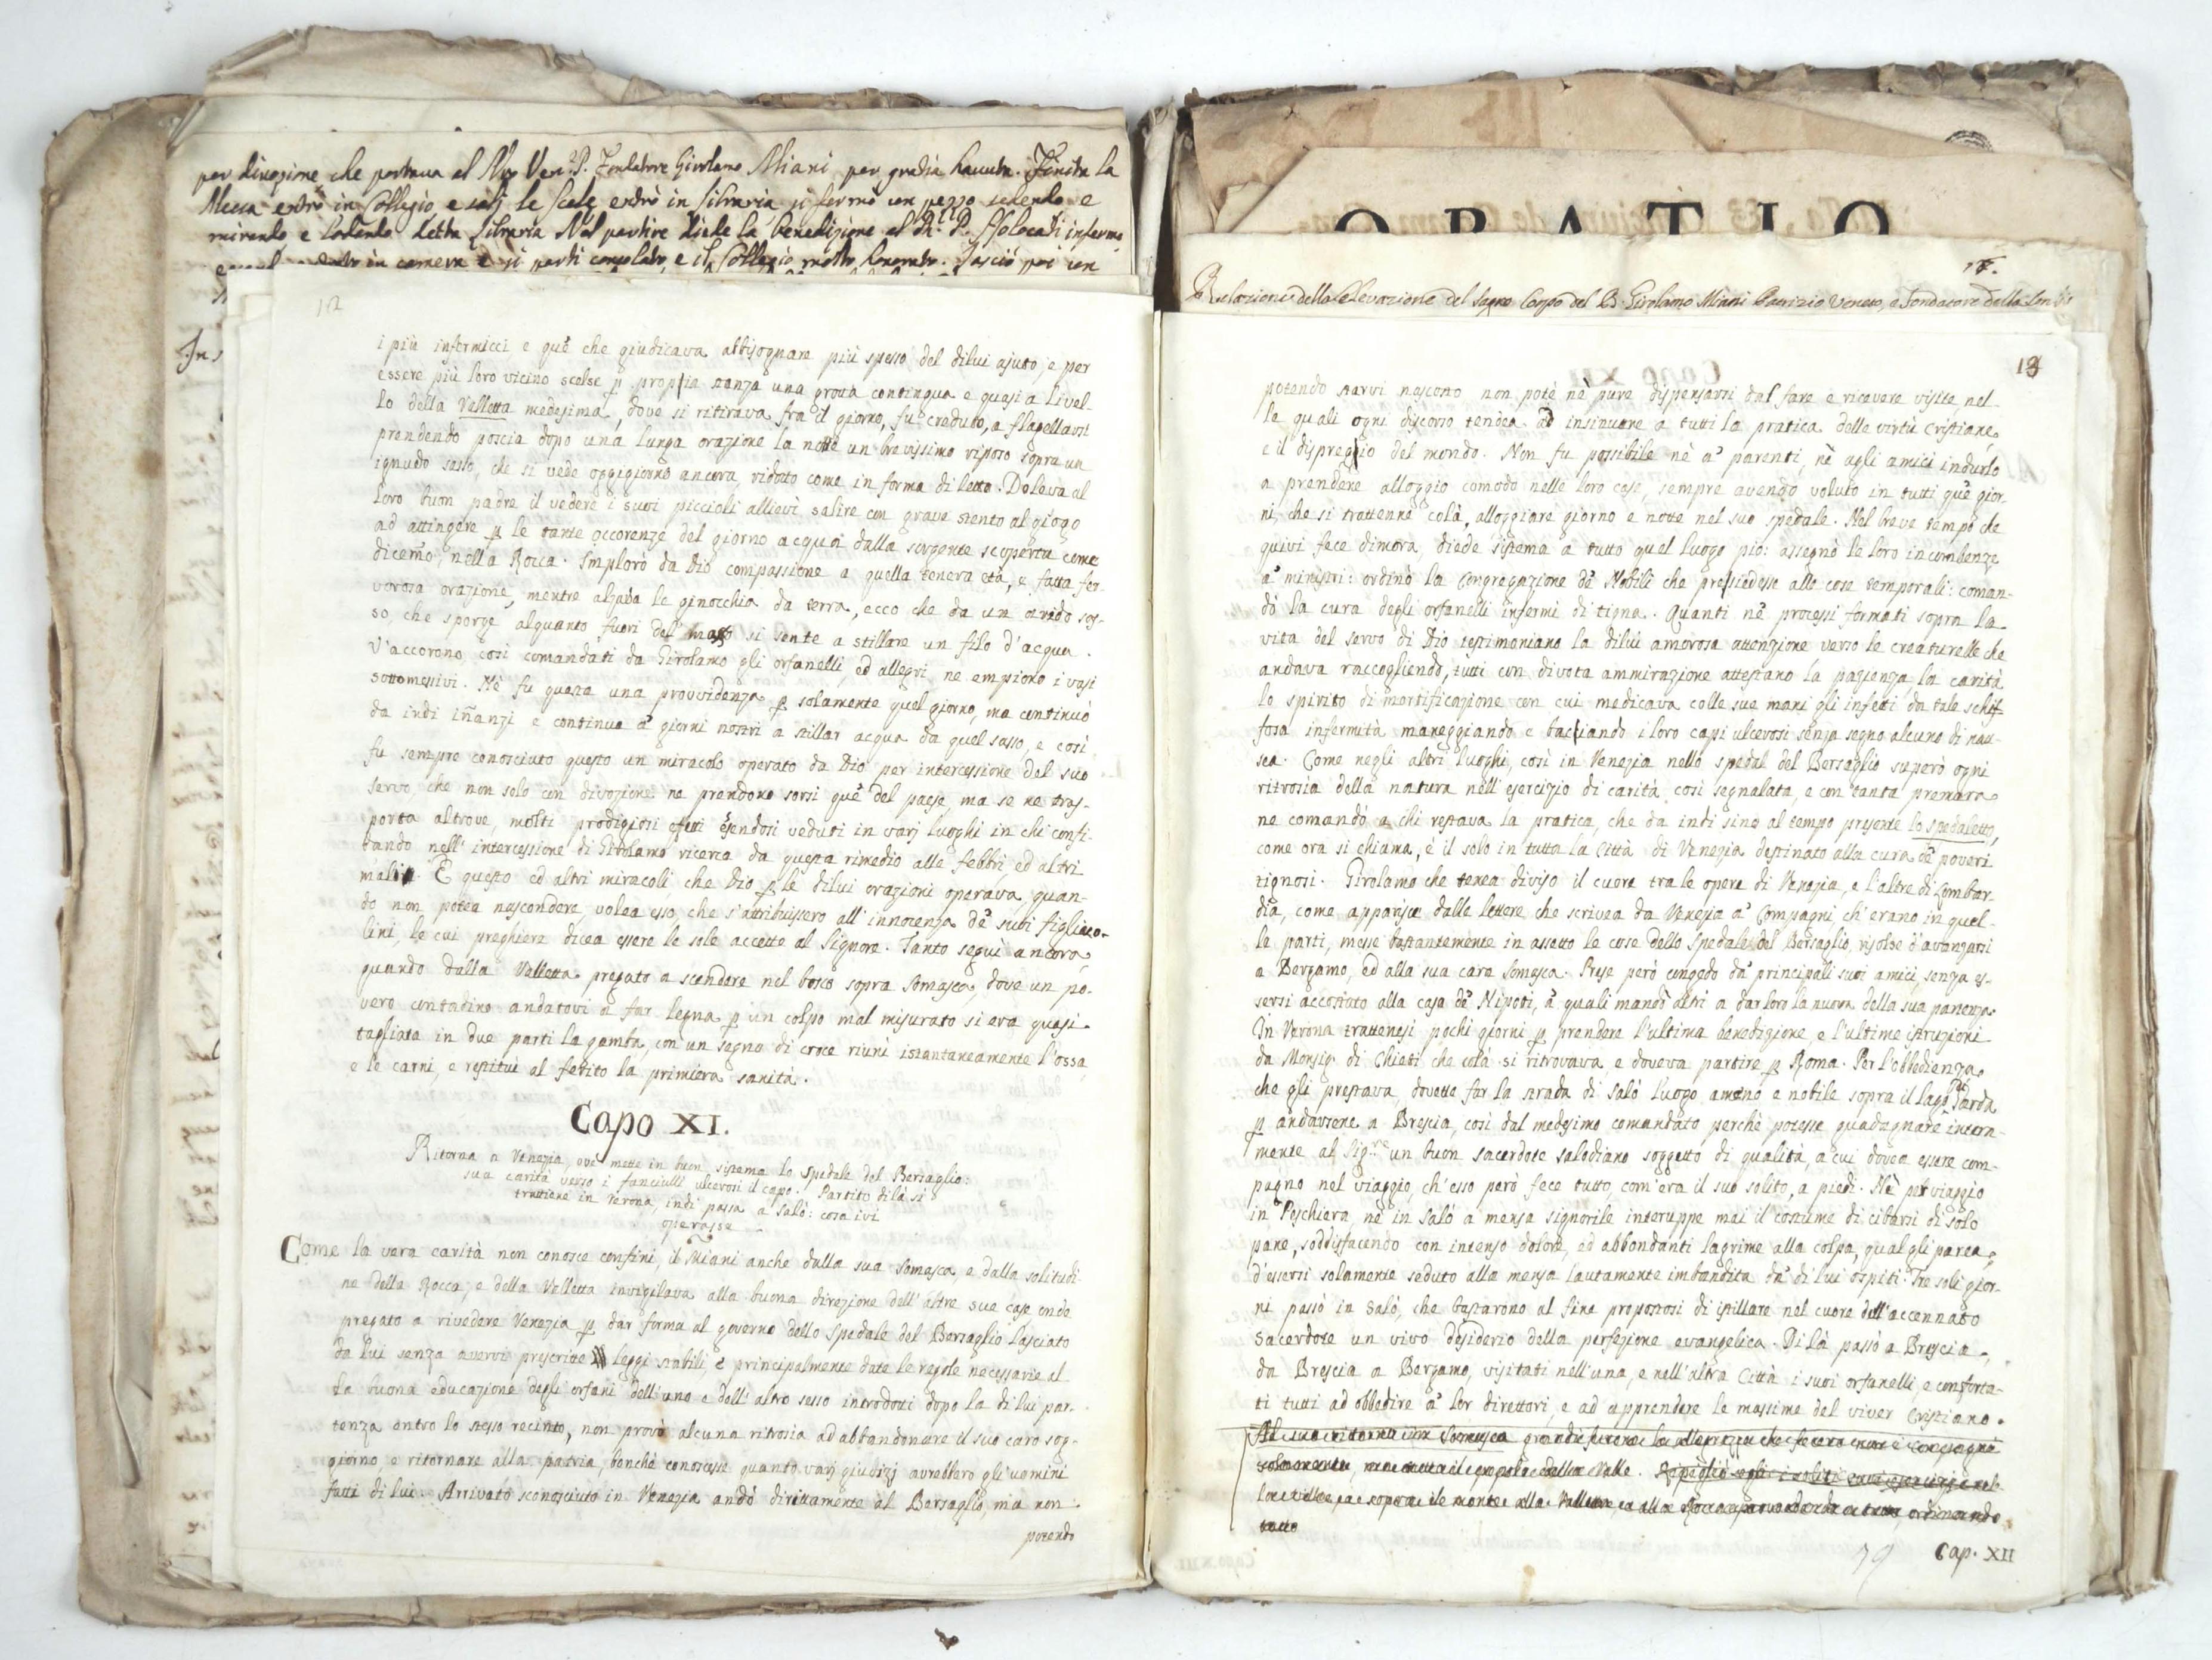 per divozione che portava al Nro Ven. P. Fondatore Girolamo Miani per grazia havuta. Finita la
Messa entrò in Collegio e salì le scale entrò in libraria si fermò un pezzo sedendo e
mirando e lodando detta libraria Nel partire diede la benedizione al infermo
in camera e si partì consolato e il Collegio molto honorato. Lasciò poi un
112
i più infermicci e què che giudicava abbisognare più spesso del dilui ajuto, e per
essere più loro vicino scelse p propria stanza una grotta contingua e quasi a livel-
lo della Valletta medesima, dove si ritirava fra il giorno, fu creduto, a flagellarsi
prendendo poscia dopo una lunga orazione la notte un brevissimo riposo sopra un
ignudo sasso, che si vede oggigiorno ancora ridotto come in forma di letto. Doleva al
loro buon padre il vedere i suoi piccioli allievi salire con grave stento al giogo
ad attingere p le tante occorenze del giorno acqua dalla sorgente scoperta come
dicemo, nella Rocca. Implorò da Dio compassione a quella tenera età, e fatta fer-
vorosa orazione, mentre alzava le ginocchia da terra, ecco che da un arido sas-
so, che sporge alquanto fuori del masso si sente a stillare un filo d'acqua.
V'accorono così comandati da Girolamo gli orfanelli, ed allegri ne empiono i vasi
sottomessivi. Nè fu questa una provvidenza p solamente quel giorno, ma continuò
da indi inanzi e continua a' giorni nostri a stillar acqua da quel sasso, e così
fu sempre conosciuto questo un miracolo operato da Dio per intercessione del suo
servo, che non solo con divozione ne prendono sorsi què del paese, ma se ne tras-
porta altrove, molti prodigiosi effetti essendosi veduti in varj luoghi in chi confi-
dando nell'intercessione di Girolamo ricerca da questa rimedio alle febbri, ed altri
mali. E questo ed altri miracoli, che Dio p le dilui orazioni operava, quan-
do non potea nascondere, volea esso, che s'attribuissero all'innocenza dè suoi figliuo-
lini, le cui preghiere dicea essere le sole accette al Signore. Tanto seguì ancora,
quando dalla Valletta pregato a scendere nel bosco sopra Somasca, dove un po-
vero contadino andatovi a far legna p un colpo mal misurato si era quasi
tagliata in due parti la gamba, con un segno di croce riunì istantaneamente l'ossa
e le carni, e restituì al ferito la primiera sanità.
Capo XI.
Ritorna a Venezia, ove mette in buon sistema lo spedale del Bersaglio:
sua carità verso i fanciulli ulcerosi il capo. Partito di là si
trattiene in Verona, indi passa a Salò: cosa ivi
operasse
Come la vera carità non conosce confini, il Miani anche dalla sua Somasca, e dalla solitudi-
ne della Rocca, e della Valletta invigilava alla buona direzione dell'altre sue case onde
pregato a rivedere Venezia p dar forma al governo dello spedale del Bersaglio lasciato
da lui senza avervi prescritte leggi stabili, e principalmente date le regole necessarie al-
la buona educazione degli orfani dell'uno e dell'altro sesso introdotti dopo la di lui par-
tenza entro lo stesso recinto, non provò alcuna ritrosia ad abbandonare il suo caro sog-
giorno e ritornare alla patria, benchè conoscesse quanto varj giudizj avrebbero gli uomini
fatti di lui. Arrivato sconosciuto in Venezia andò dirittamente al Bersaglio, ma non
potendo
ORATIO
Relazione della Elevazione del Sagro Corpo del B. Girolamo Miani Patrizio Veneto, e Fondatore della
13
potendo starvi nascosto non potè nè pure dispensarsi dal fare e ricevere visite, nel-
le quali ogni discorso tendea ad insinuare a tutti la pratica delle virtù cristiane,
e il dispregio del mondo. Non fu possibile nè a' parenti, nè agli amici indurlo
a prendere alloggio comodo nelle loro case, sempre avendo voluto in tutti què gior-
ni, che si trattenne colà, alloggiare giorno e notte nel suo spedale. Nel breve tempo che
quivi fece dimora, diede sistema a tutto quel luogo pio: assegnò le loro incombenze
a' ministri: ordinò la Congregazione dè Nobili che presiedesse alle cose temporali: coman-
dò la cura degli orfanelli infermi di tigna. Quanti nè processi formati sopra la
vita del servo di Dio testimoniano la dilui amorosa attenzione verso le creaturelle che
andava raccogliendo, tutti con divota ammirazione attestano la pazienza la carità
lo spirito di mortificazione con cui medicava colle sue mani gli infetti da tale schif-
fosa infermità maneggiando e baciando i loro capi ulcerosi senza segno alcuno di nau-
sea. Come negli altri luoghi, così in Venezia nello spedal del Bersaglio superò ogni
ritrosia della natura nell'esercizio di carità così segnalata, e con tanta premura
ne comandò a chi restava la pratica, che da indi sino al tempo presente lo spedaletto,
come ora si chiama, è il solo in tutta la Città di Venezia destinato alla cura dè poveri
tignosi. Girolamo che tenea diviso il cuore tra le opere di Venezia, e l'altre di Lombar-
dia, come apparisce dalle lettere che scrivea da Venezia a' Compagni, ch'erano in quel-
le parti, messe bastantemente in assetto le cose dello spedale del Bersaglio, risolse d'avanzarsi
a Bergamo, ed alla sua cara Somasca. Prese però congedo da' principali suoi amici, senza es-
sersi accostato alla casa dè Nipoti, a' quali mandò altri a dar loro la nuova della sua partenza.
In Verona trattenesi pochi giorni p prendere l'ultima benedizione, e l'ultime istruzioni
da Monsig. di Chieti che colà si ritrovava e doveva partire p Roma. Per l'obbedienza,
che gli prestava, dovette far la strada di Salò luogo ameno e nobile sopra il lago di Garda
p andarsene a Brescia, così dal medesimo comandato perchè potesse guadagnare intera-
mente al Sig.re un buon sacerdote salodiano soggetto di qualità, a cui dovea essere com-
pagno nel viaggio, ch'esso però fece tutto, com'era il suo solito, a piedi. Nè pel viaggio
in Peschiera, nè in Salò a mensa signorile interuppe mai il costume di cibarsi di solo
pane, soddisfacendo con intenso dolore, ed abbondanti lagrime alla colpa, qual gli parea,
d'essersi solamente seduto alla mensa lautamente imbandita da' di lui ospiti. Tre soli gior-
ni passò in Salò, che bastarono al fine propostosi di istillare nel cuore dell'accennato
sacerdote un vivo desiderio della perfezione evangelica. Di là passò a Brescia,
da Brescia a Bergamo, visitati nell'una, e nell'altra Città i suoi orfanelli e conforta-
ti tutti ad obbedire a' lor direttori, e ad apprendere le massime del viver Cristiano.
Al suo ritorno in Somasca grande fu la allegrezza che fecero non i compagni
solamente, ma tutto il popolo della Valle.
sopra il monte alla Valletta, ed alla Rocca ordinando
tutto
79
Cap. XII